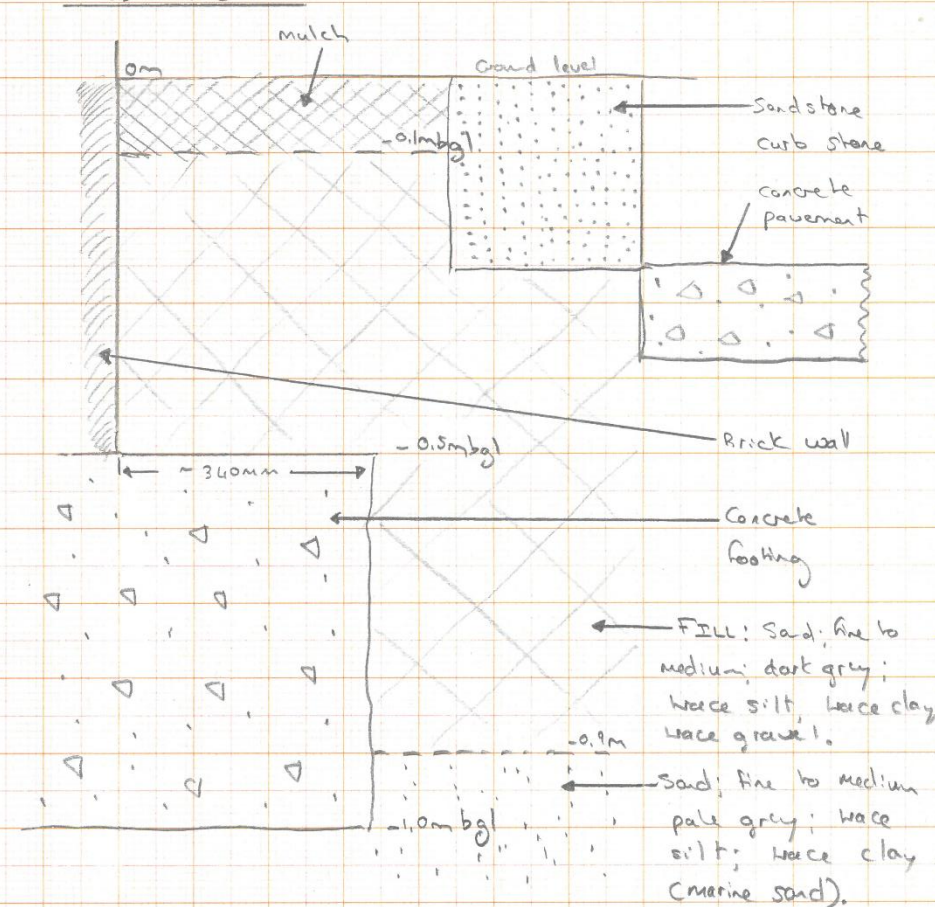 mulch
0m
Ground level
Sandstone
curb stone
-0.1mbgl
concrete
pavement
Brick wall
-0.5mbgl
~340mm
Concrete
footing
FILL: Sand; fine to
medium; dark grey;
trace silt, trace clay
trace gravel.
-0.9m
Sand; fine to medium
pale grey; trace
silt; trace clay
(marine sand).
-1.0mbgl